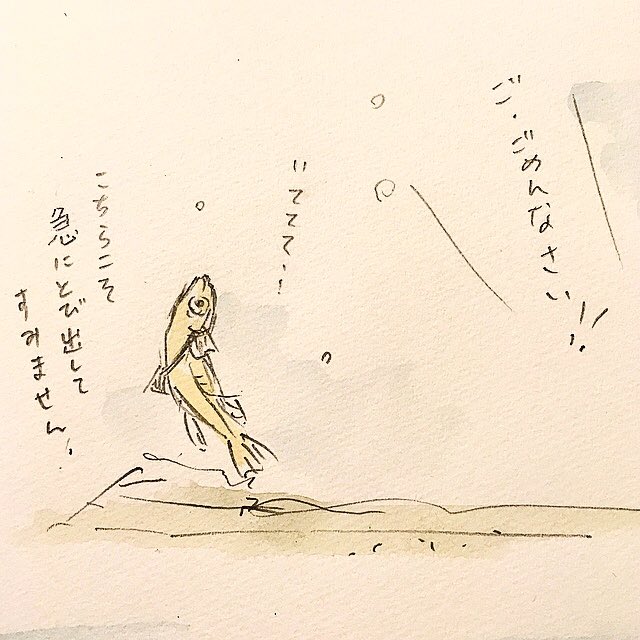 ご・ごめんなさい!!
いててて!
こちらこそ
急にとび出して
すみません!